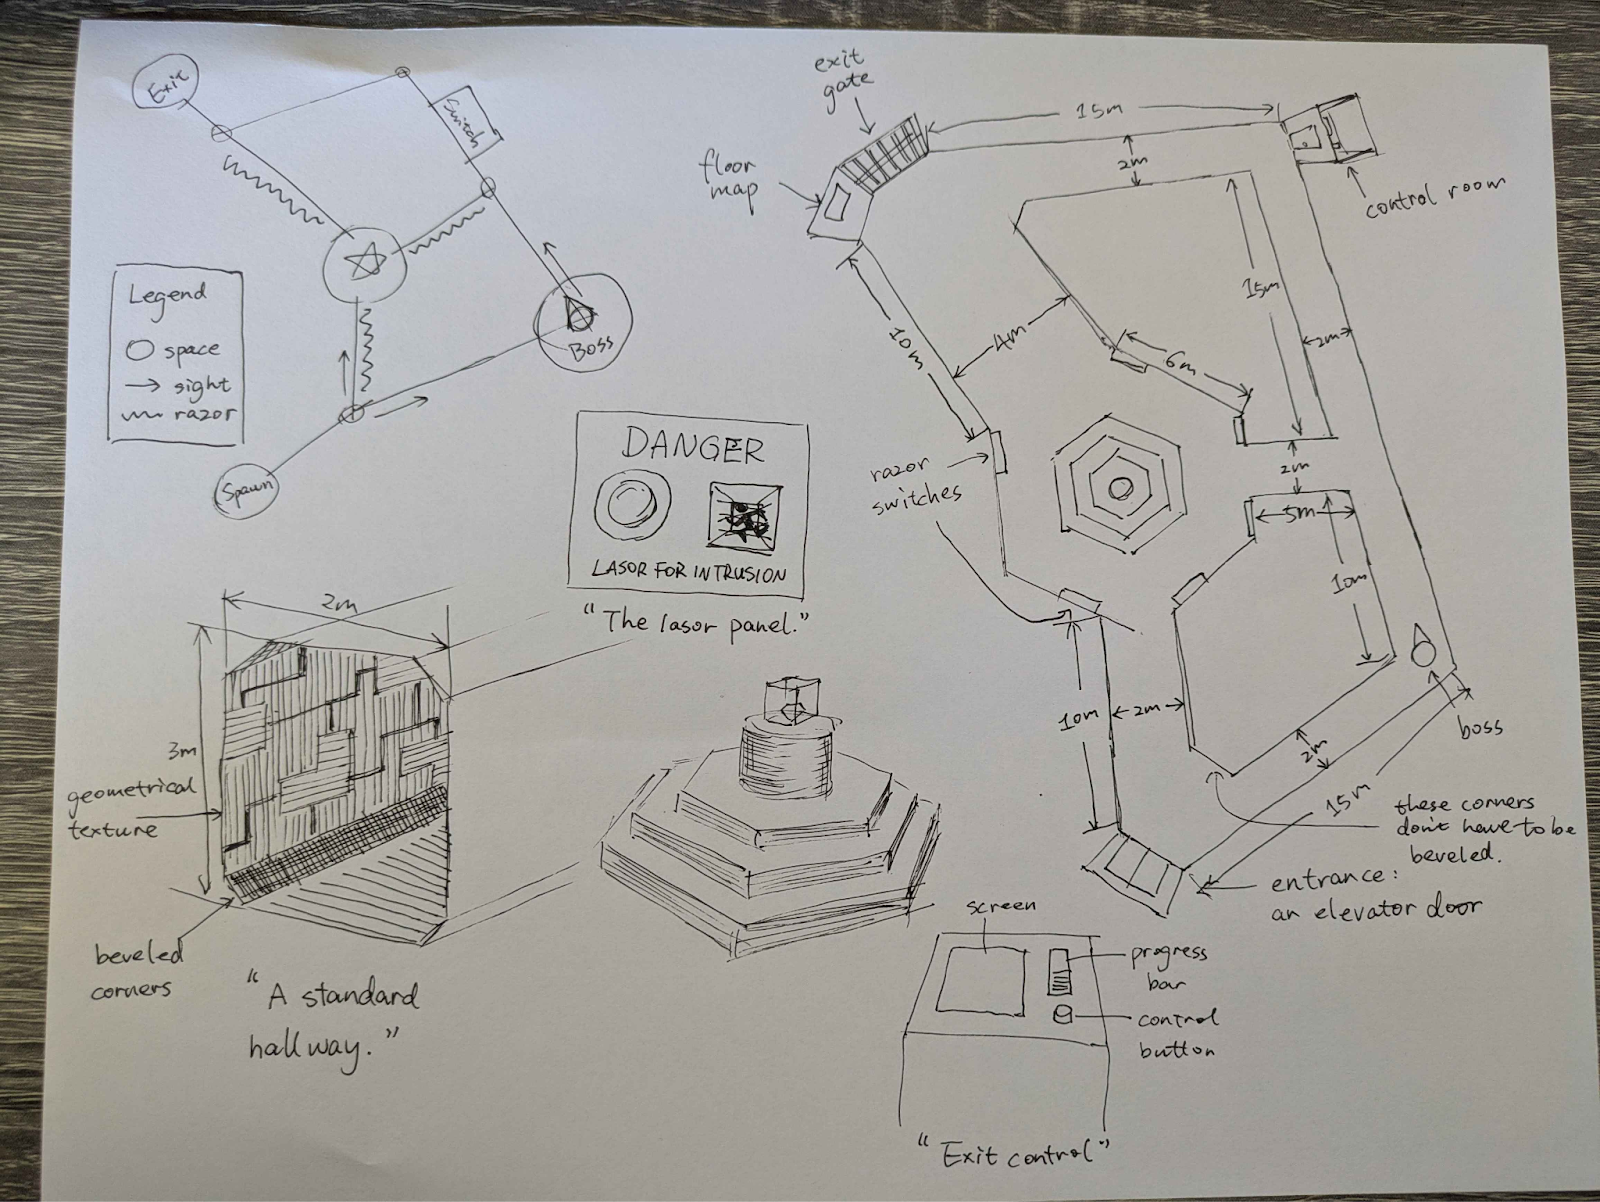 Exit
Switch
Boss
Spawn
Legend
space
sight
razor
DANGER
LASOR FOR INTRUSION
"The lasor panel."
2m
3m
geometrical
texture
beveled
corners
"A standard
hallway."
exit
gate
floor
map
15m
2m
control room
15m
2m
10m
4m
6m
razor
switches
2m
5m
10m
10m
2m
2m
15m
boss
these corners
don't have to be
beveled.
entrance:
an elevator door
screen
progress
bar
control
button
"Exit control"